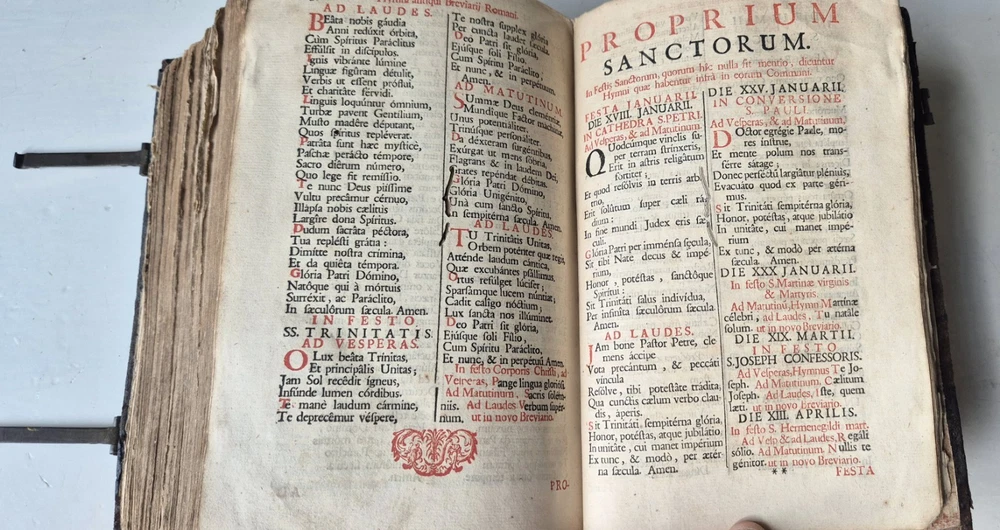 Hymni antiqui Breviarij Romani.
AD LAUDES.
BEáta nobis gáudia
Anni redúxit órbita,
Cum Spíritus Paráclitus
Effúlsit in discípulos.
Ignis vibránte lúmine
Linguæ figúram détulit,
Verbis ut essent próflui,
Et charitáte férvidi.
Linguis loquúntur ómnium,
Turbæ pavent Gentilium,
Musto madére députant,
Quos spíritus repléverat.
Patráta sunt hæc mysticè,
Paschæ perácto témpore,
Sacro diérum número,
Quo lege fit remíssio.
Te nunc Deus piíssime
Vultu precámur cérnuo,
Illápsa nobis cælitus
Largíre dona Spíritus.
Pudum sacráta péctora,
Tua replésti grátia:
Dimítte nostra crimina,
Et da quiéta témpora.
Glória Patri Dómino,
Natóque qui à mórtuis
Surréxit, ac Paráclito,
In sæculórum sæcula. Amen.
IN FESTO
SS. TRINITATIS
AD VESPERAS.
O Lux beáta Trínitas,
Et principális Unitas;
Jam Sol recédit ígneus,
Infúnde lumen córdibus.
Te manè laudum cármine,
Te deprecémur véspere,
Te nostra supplex glória
Per cuncta laudet sæcula.
Deo Patri sit glória,
Ejúsque soli Filio,
Cum Spíritu Paráclito,
Et nunc, & in perpétuum.
Amen.
AD MATUTINUM.
SUmmæ Deus cleméntiæ,
Mundíque Factor máchinæ,
Unus potentiáliter,
Trinúsque personáliter.
Da dexteram surgéntibus,
Exúrgat ut mens sóbria,
Flagrans & in laudem Dei,
Grates repéndat débitas.
Glória Patri Dómino,
Glória Unigénito,
Unà cum sancto Spíritu,
In sempitérna sæcula. Amen.
AD LAUDES.
TU Trinitátis Unitas,
Orbem poténter quæ regis,
Atténde laudum cántica,
Quæ excubántes psállimus.
Ortus refúlget lúcifer;
Sparsámque lucem núntiat,
Cadit calígo nóctium;
Lux sancta nos illúminet.
Deo Patri sit glória,
Ejúsque soli Fílio,
Cum Spíritu Paráclito,
Et nunc, & in perpétuũ Amen.
In festo Corporis Christi, ad
Vesperas, Pange lingua gloriósi.
Ad Matutinum, Sacris solém-
niis. Ad Laudes Verbum supér-
num, ut in novo Breviario.
PRO-
PROPRIUM
SANCTORUM.
In Festis Sanctorum, quorum hîc nulla fit mentio, dicuntur
Hymni quæ habentur infrà in eorum Communi.
FESTA JANUARII.
DIE XVIII. JANUARII.
IN CATHEDRA S.PETRI.
Ad Vesperas, & ad Matutinum.
QUodcúmque vinclis su-
per terram strínxeris,
Erit in astris religátum
fórtiter;
Et quod resólvis in terris arbí-
Erit solútum super cæli rá-
dium:
In fine mundi Judex eris sæ-
culi.
Glória Patri per imménsa sęcula,
Sit tibi Nate decus & impé-
rium,
Honor, potéstas, sanctóque
Spíritui:
Sit Trinitáti salus indivídua,
Per infiníta sæculórum sæcula.
Amen.
AD LAUDES.
JAm bone Pastor Petre, cle
mens áccipe
Vota precántum, & peccáti
víncula
Resólve, tibi potestáte trádita,
Qua cunctis cælum verbo clau-
dis, áperis.
Sit Trinitáti sempitérna glória,
Honor, potéstas, atque jubilátio
In unitáte, cui manet impérium
Ex tunc, & modò, per ætér-
na sæcula. Amen.
DIE XXV. JANUARII.
IN CONVERSIONE
S. PAULI
Ad Vesperas, & ad Matutinum,
DOctor egrégie Paule, mo-
res ínstrue,
Et mente polum nos trans-
férre sátage;
Donec perféctũ largiátur plénius,
Evacuáto quod ex parte géri-
mus.
Sit Trinitáti sempitérna glória,
Honor, potéstas, atque jubilátio
In unitáte, cui manet impé-
rium
Ex tunc, & modò per ætérna
sæcula. Amen.
DIE XXX JANUARII.
In festo S.Martinæ virginis
& Martyris.
Ad Matutinũ, Hymn Martinæ
célebri, ad Laudes, Tu natále
solum. ut in novo Breviario.
DIE XIX. MARTII.
IN FESTO
S.JOSEPH CONFESSORIS.
Ad Vesperas, Hymnus Te Jo-
seph. Ad Matutinum, Cælitum
Joseph. Ad Laudes, Iste, quem
læti. ut in novo Breviario.
DIE XIII. APRILIS.
In festo S. Hermenegildi mart.
Ad Vesp & ad Laudes, Regáli
sólio. Ad Matutinum. Nullis te
génitor. ut in novo Breviario.
**
FESTA